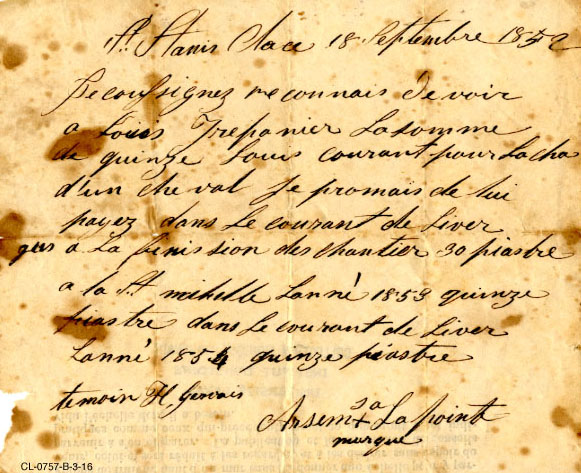 St. Stanis Clace 18 Septembre 1852
Je coussignez reconnais devoir
a Louis Trepanier La somme
de quinze Louis courant pour Lacha
d'un cheval Je promais de lui
payez dans Le courant de Liver
jus a La finission des chantier 30 piastre
a la St. mikelle Lanné 1853 quinze
piastre dans Le courant de Liver
Lanné 1854 quinze piastre
temoin H Gervais
Arsem + sa La point
marque
CL-0757-B-3-16